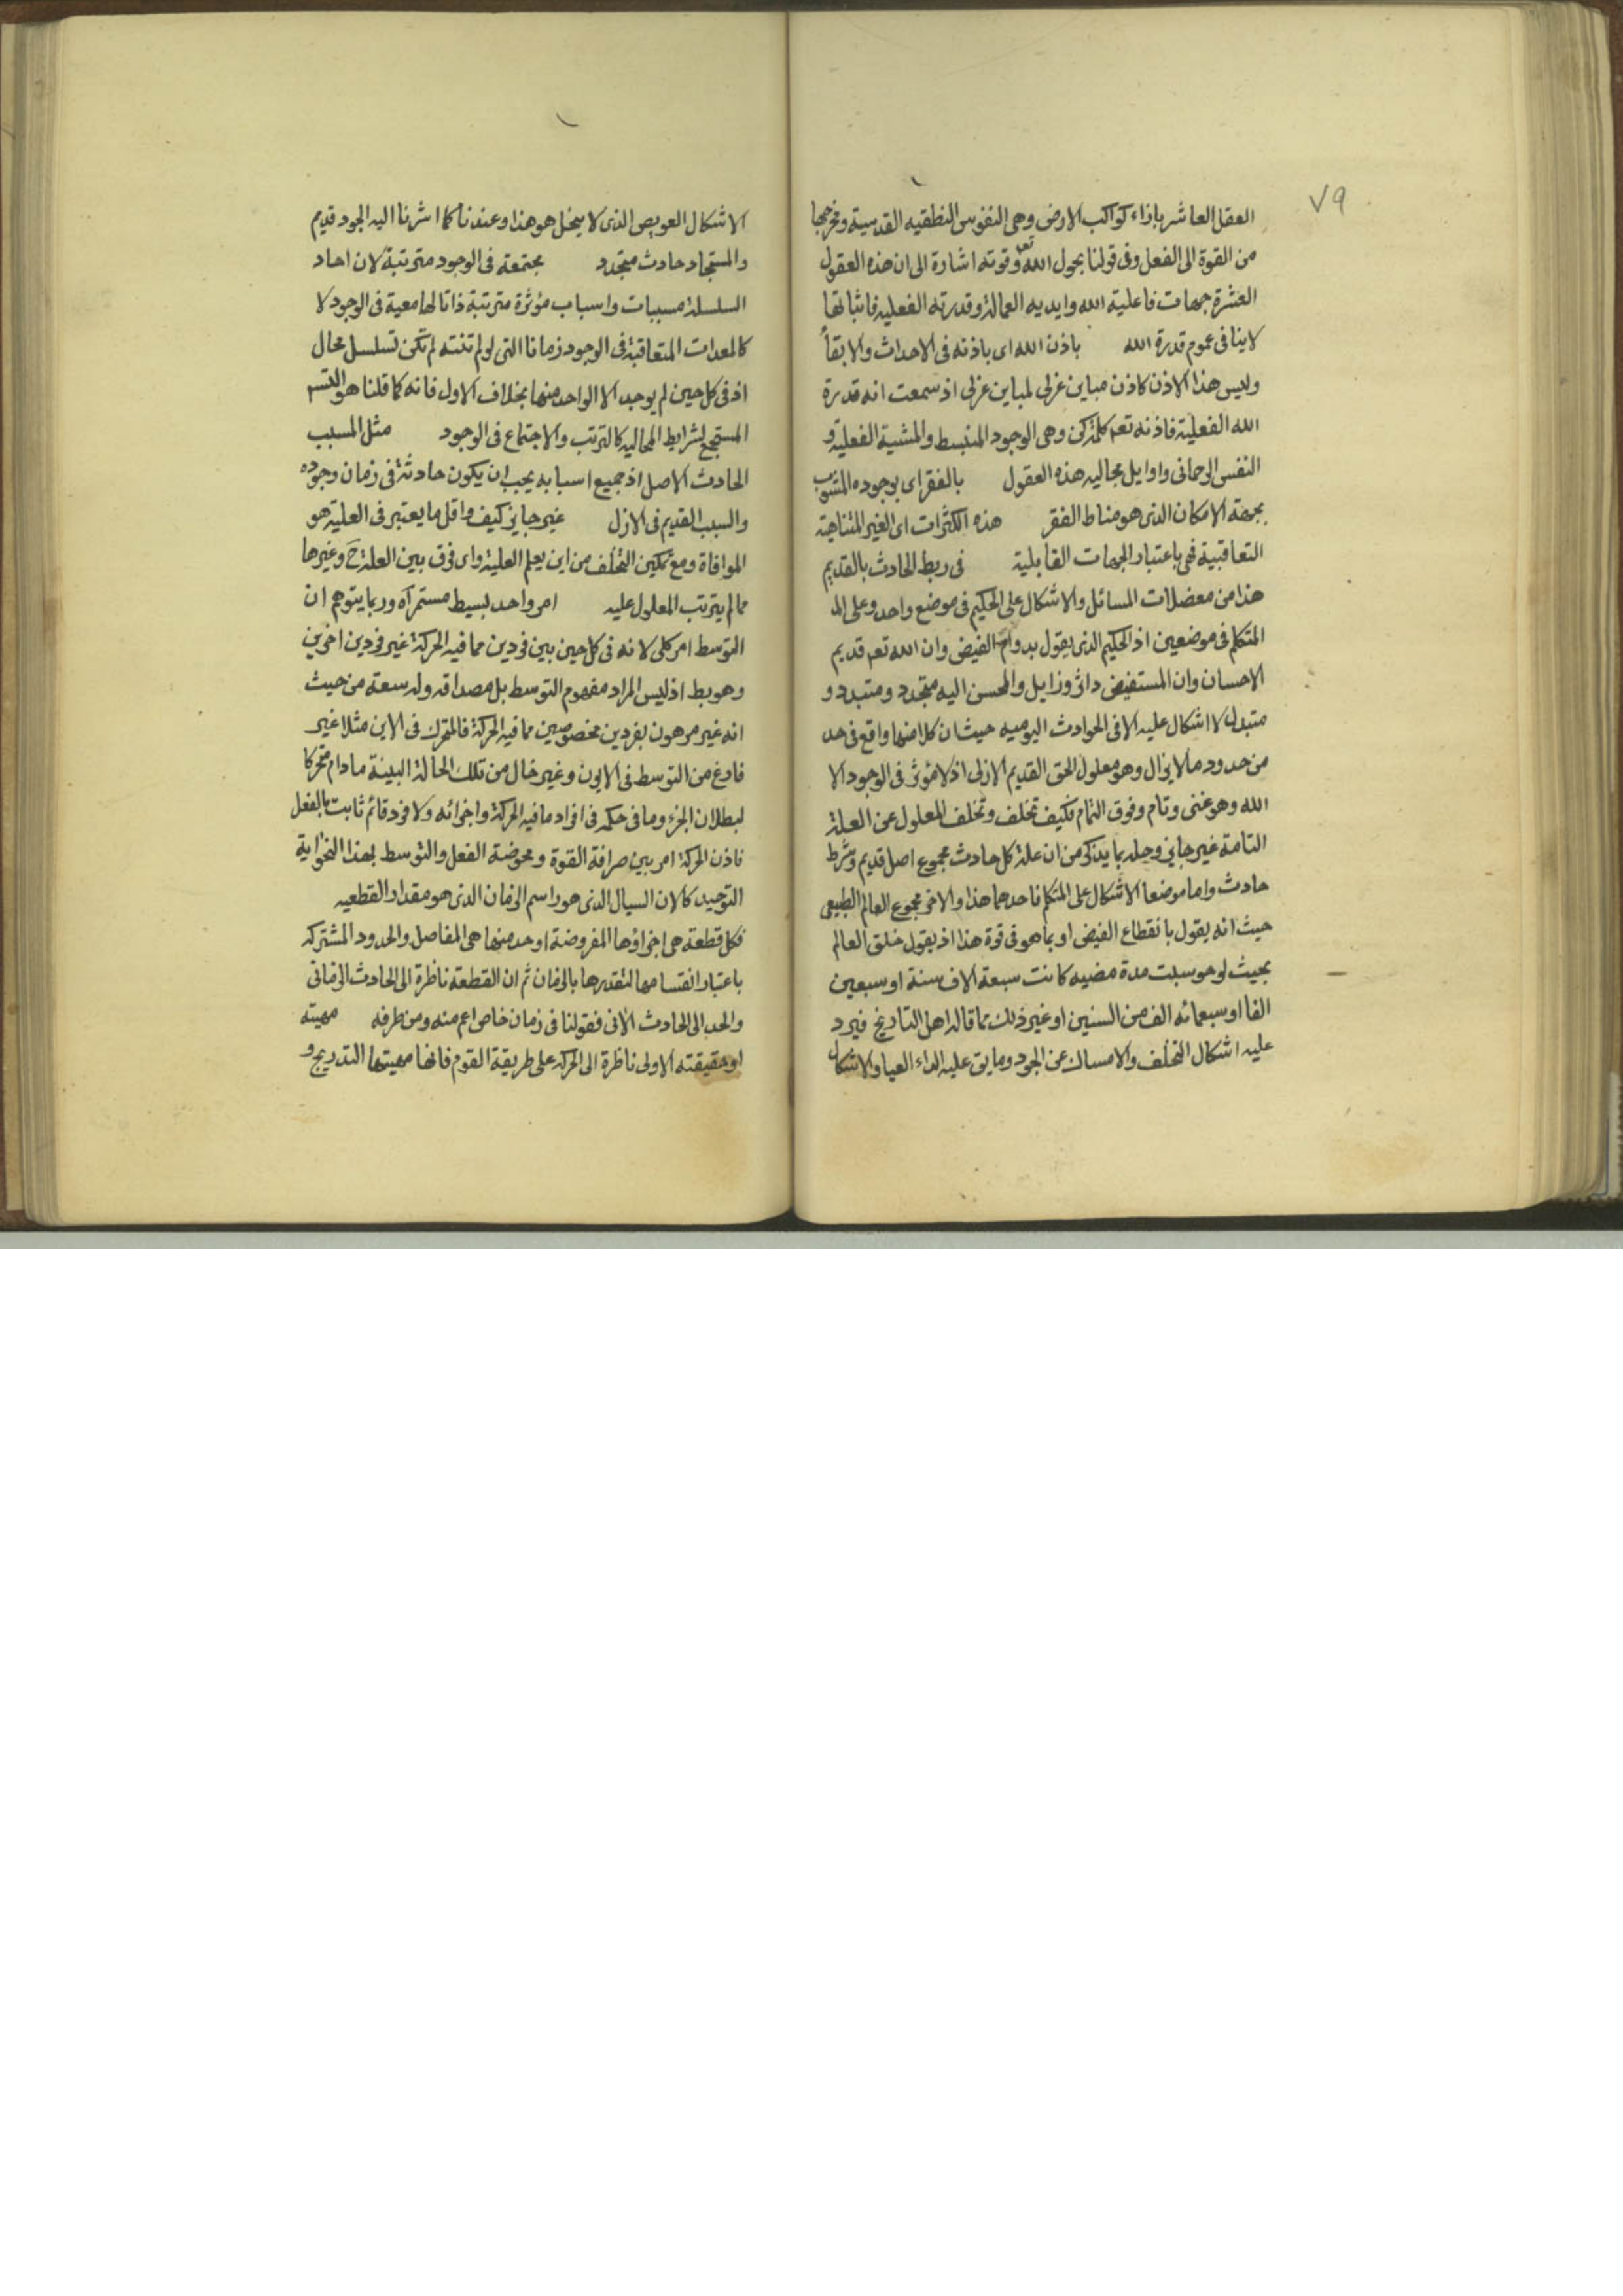 ٧٩
العقل العاشر بازاء كواكب الارض وهى النفوس النطقيه القدسية ومخرجها
من القوة الى الفعل وفى قولنا بحول الله تعه وقوته اشارة الى ان هذه العقول
العشرة جهات فاعلية الله وايديه العمالة وقدرته الفعليه فاثباتها
لاينافى عموم قدرة الله باذن الله اى باذنه فى الاحداث والابقأ
وليس هذا الاذن كاذن مباين عزلى لمباين عزلى اذ سمعت انه قدرة
الله الفعلية فاذنه تعه كلمة كن وهى الوجود المنبسط والمشية الفعلية و
النفس الرحمانى واوايل مجاليه هذه العقول بالفقر اى بوجوده المشوب
بجهة الامكان الذى هو مناط الفقر هذه الكثرات اى الغير المتناهية
التعاقبية فهى باعتبار الجهات القابلية فى ربط الحادث بالقديم
هذا من معضلات المسائل والاشكال على الحكيم فى موضع واحد وعلى الم
المتكلم فى موضعين اذ الحكيم الذى يقول بدوام الفيض وان الله تعه قديم
الاحسان وان المستفيض داثر وزايل والمحسن اليه متجدد ومتبدد و
متبدل لا اشكال عليه الا فى الحوادث اليوميه حيث ان كلا منها واقع فى حد
من حدود ما لا يزال وهو معلول الحق القديم الازلى اذ لا مؤثر فى الوجود الا
الله وهو غنى وتام وفوق التمام فكيف تخلف وتخلف المعلول عن العلة
التامة غير جايز وحله بما يذكر من ان علة كل حادث مجموع اصل قديم وشرط
حادث واما موضعا الاشكال على المتكلم فاحدهما هذا والاخر مجموع العالم الطبيعى
حيث انه يقول بانقطاع الفيض او بما هو فى قوة هذا اذ يقول خلق العالم
بحيث لو حوسبت مدة مضيه كانت سبعة الاف سنة او سبعين
الفا او سبعمائه الف من السنين او غير ذلك مما قاله اهل التاريخ فيرد
عليه اشكال التخلف والامساك عن الجود وما يق عليه الداء العيا والاشكال
الاشكال العويص الذى لا ينحل هو هذا وعندنا كما اشرنا اليه الجود قديم
والمستجاد حادث متجدد مجتمعة فى الوجود مترتبة لان احاد
السلسلة مسببات واسباب مؤثرة مترتبة ذاتا لها معية فى الوجود لا
كالمعدات المتعاقبة فى الوجود زمانا التى لو لم تنته لم تكن تسلسل محال
اذ فى كل حين لم يوجد الا الواحد منها بخلاف الاول فانه كما قلنا هو التسم
المستجمع لشرايط المحاليه كالترتب والاجتماع فى الوجود مثل المسبب
الحادث الاصل اذ جميع اسبابه يجب ان يكون حادثة فى زمان وجوده
والسبب القديم فى الازل غير جايز كيف واقل ما يعتبر فى العلية هو
الموافاة ومع تمكين التخلف من اين يعلم العلية واى فرق بين العلة ح وغيرها
مما لم يترتب المعلول عليه امر واحد بسيط مستمر آه وربما يتوهم ان
التوسط امر كلى لانه فى كل حين بين فردين مما فيه الحركة غير فردين اخرين
وهو بط اذ ليس المراد مفهوم التوسط بل مصداقه وله سعة من حيث
انه غير مرهون بفردين مخصوصين مما فيه الحركة فالمتحرك فى الاين مثلا غير
فارغ من التوسط فى الايون وغير خال من تلك الحالة البينية مادام متحركا
لبطلان الجزء وما فى حكمه فى افراد ما فيه الحركة واجزائه ولا فرد قائم ثابت بالفعل
فاذن الحركة امر بين صرافة القوة ومحوضة الفعل والتوسط بهذا النحو اية
التوحيد كالان السيال الذى هو راسم الزمان الذى هو مقدار القطعيه
فكل قطعة هى اجزاؤها المفروضة او حد منها هى المفاصل والحدود المشتركه
باعتبار انقسامها لتقدرها بالزمان ثم ان القطعة ناظرة الى الحادث الزمانى
والحد الى الحادث الانى فقولنا فى زمان خاص اعم منه ومن طرفه مهيته
او حقيقته الاولى ناظرة الى الحركه على طريقة القوم فانها مهيتها التدريج و